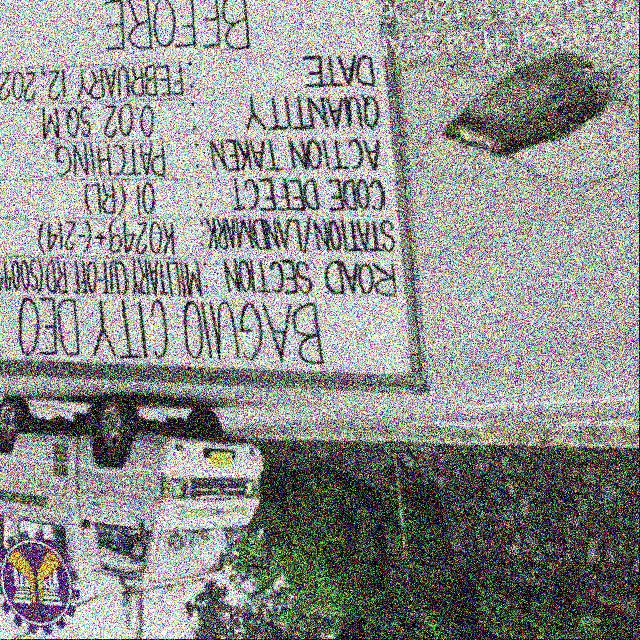 BAGUIO CITY DEO
ROAD SECTION MILITARY CUT-OFF RD (S00
STATION/LANDMARK: K0249+(-214)
CODE DEFECT : 01 (RL)
ACTION TAKEN : PATCHING
QUANTITY : 0.02 SQ.M
DATE : FEBRUARY 12, 202
BEFORE